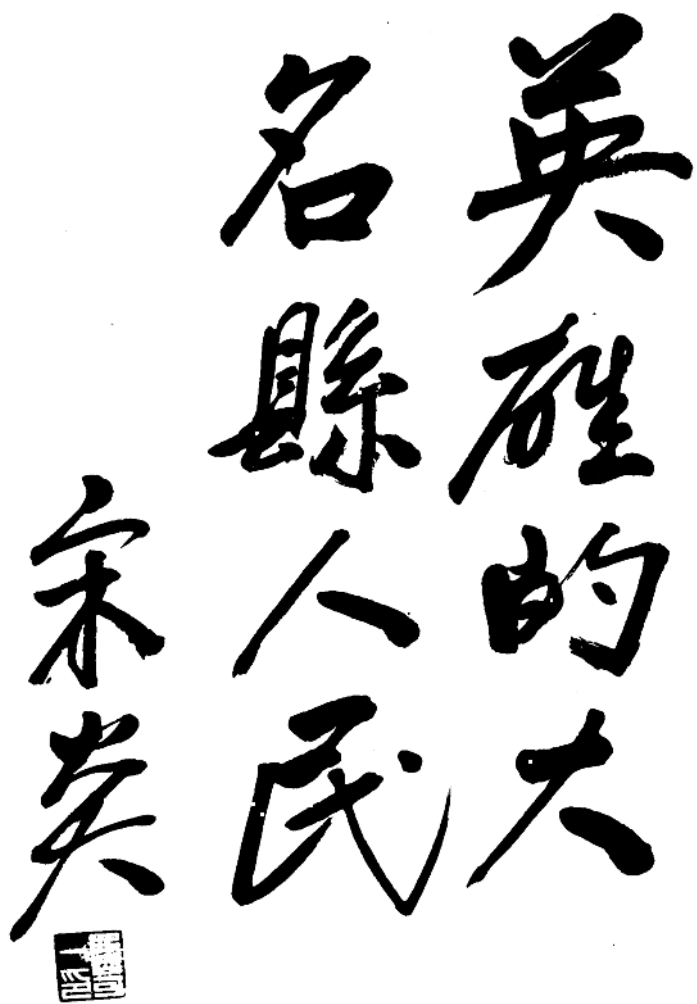 英雄的大
名縣人民
宋英